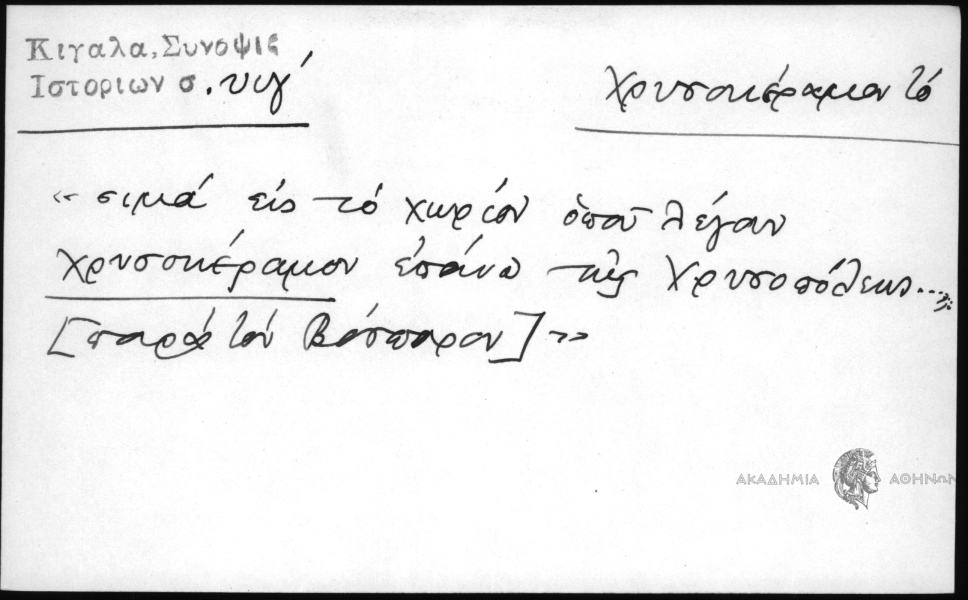 Κιγαλα, Συνοψις
Ιστοριων σ. υιγ΄
Χρυσοκέραμον τό
«σιμά εἰς τό χωρίον ὁποῦ λέγαν
Χρυσοκέραμον ἐπάνω τῆς Χρυσοπόλεως...
[παρά τόν Βόσπορον]»
ΑΚΑΔΗΜΙΑ ΑΘΗΝΩΝ